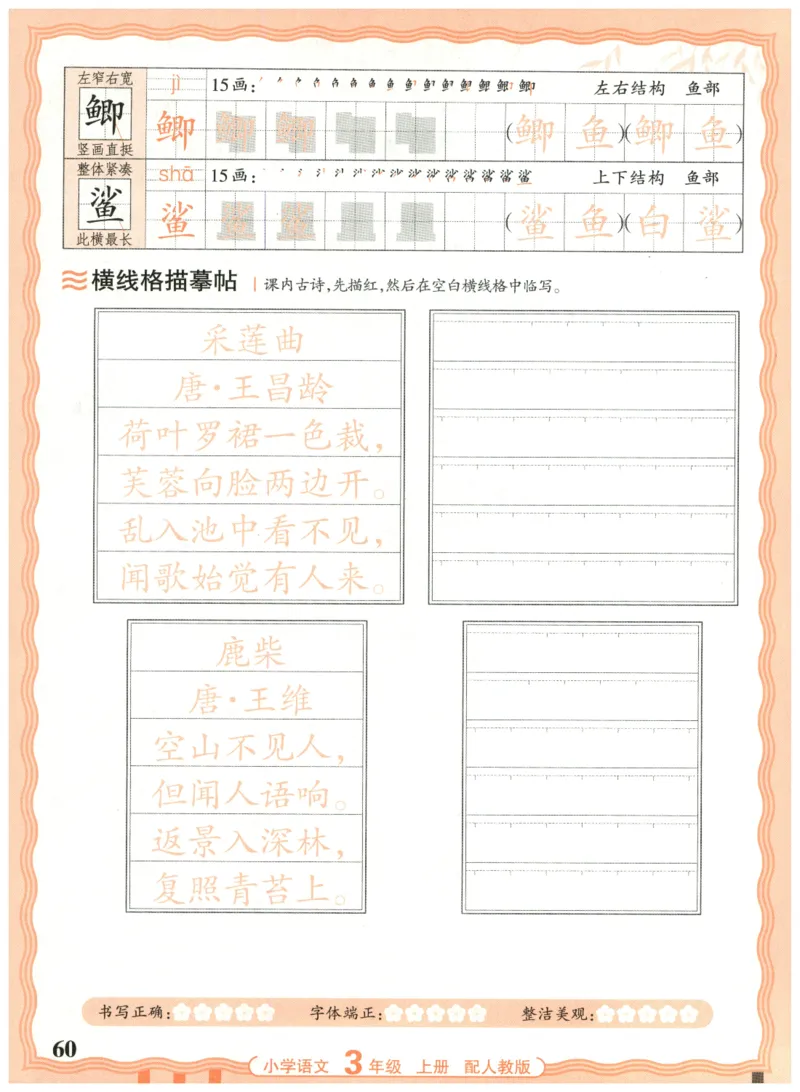 左窄右宽 jì 15画: 左右结构 鱼部
鲫 鲫 鲫 鲫 (鲫 鱼)(鲫 鱼)
竖画直挺
整体紧凑 shā 15画: 上下结构 鱼部
鲨 鲨 鲨 鲨 (鲨 鱼)(白 鲨)
此横最长
横线格描摹帖 课内古诗,先描红,然后在空白横线格中临写。
采莲曲
唐·王昌龄
荷叶罗裙一色裁,
芙蓉向脸两边开。
乱入池中看不见,
闻歌始觉有人来。
鹿柴
唐·王维
空山不见人,
但闻人语响。
返景入深林,
复照青苔上。
书写正确: 字体端正: 整洁美观:
60
小学语文 3年级 上册 配人教版